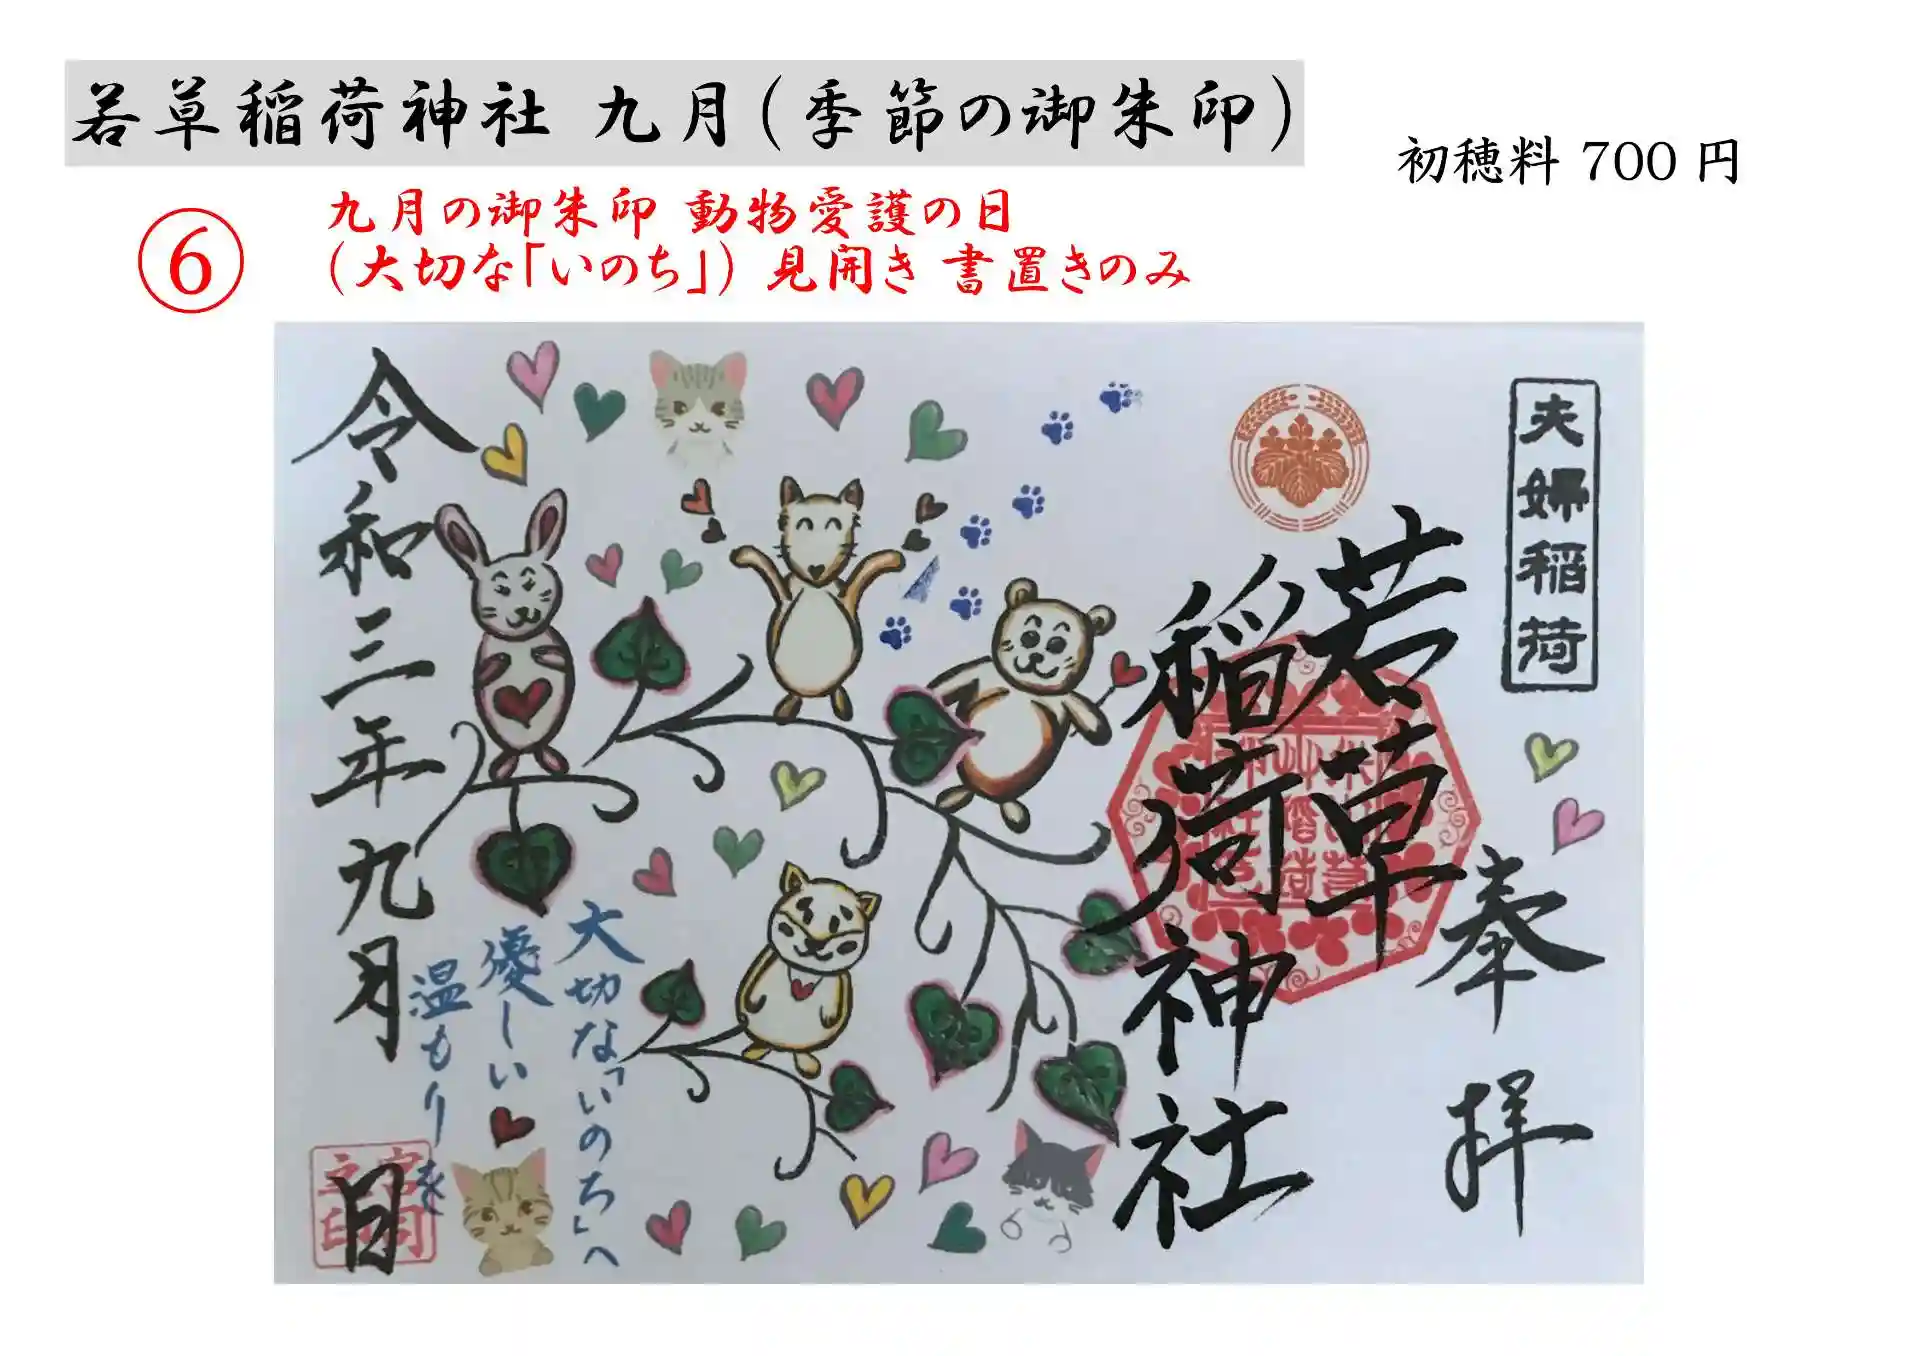 若草稲荷神社 九月(季節の御朱印)
初穂料 700 円
⑥
九月の御朱印 動物愛護の日
(大切な「いのち」) 見開き 書置きのみ
夫婦稲荷
奉拝
若草
稲荷神社
大切な「いのち」へ
優しい
温もりを
令和三年九月 日